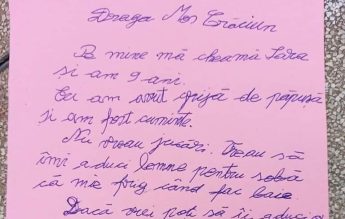 Draga Moș Crăciun
Pe mine mă cheamă Sara
și am 9 ani.
Eu am avut grijă de păpușă
și am fost cuminte.
Nu vreau jucări. Vreau să
îmi aduci lemne pentru sobă
că mie frig când fac baie
Dacă vrei poți să îi aduci o